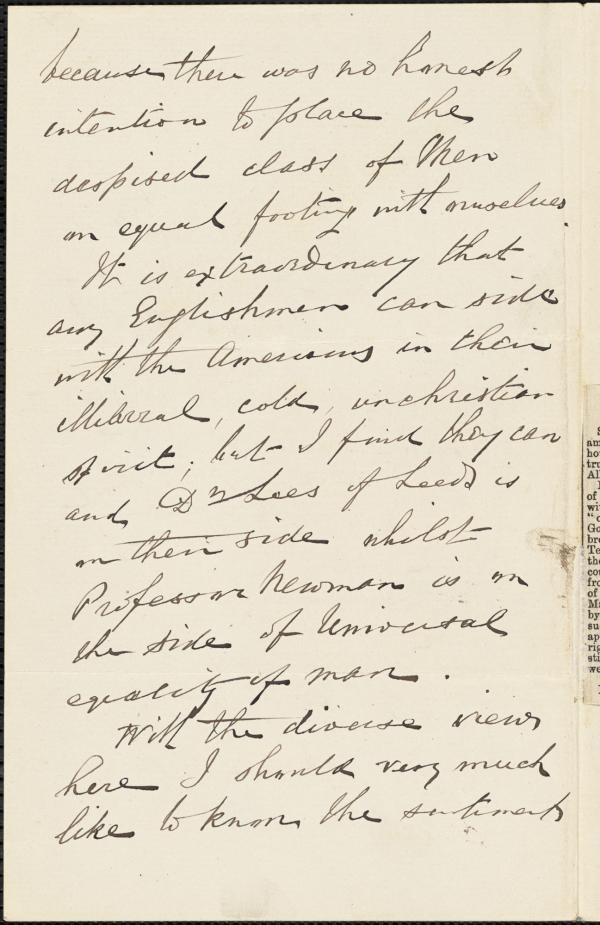 because there was no honest
intention to place the
despised class of Men
on equal footing with ourselves.
It is extraordinary that
any Englishmen can side
with the Americans in their
illiberal, cold, unchristian
spirit; but I find they can
and Dr Lees of Leeds is
on their side whilst
Professor Newman is on
the side of Universal
equality of man.
With the diverse views
here I should very much
like to know the sentiments